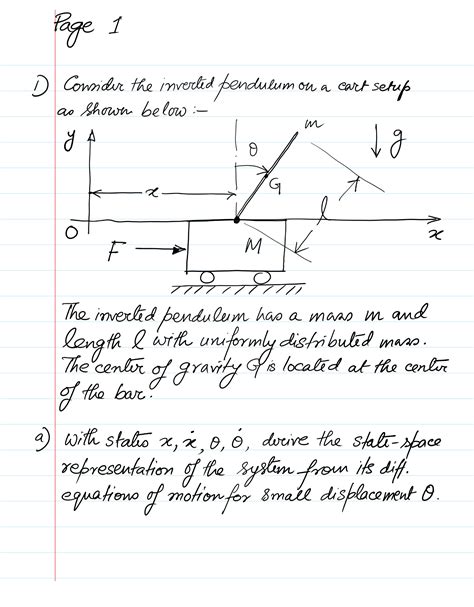 Page 1
1) Consider the inverted pendulum on a cart setup
as shown below :-
y
θ
m
g
G
x
l
O
x
F
M
The inverted pendulum has a mass m and
length l with uniformly distributed mass.
The center of gravity G is located at the center
of the bar.
a) With states x, ẋ, θ, θ̇, derive the state-space
representation of the system from its diff.
equations of motion for small displacement θ.